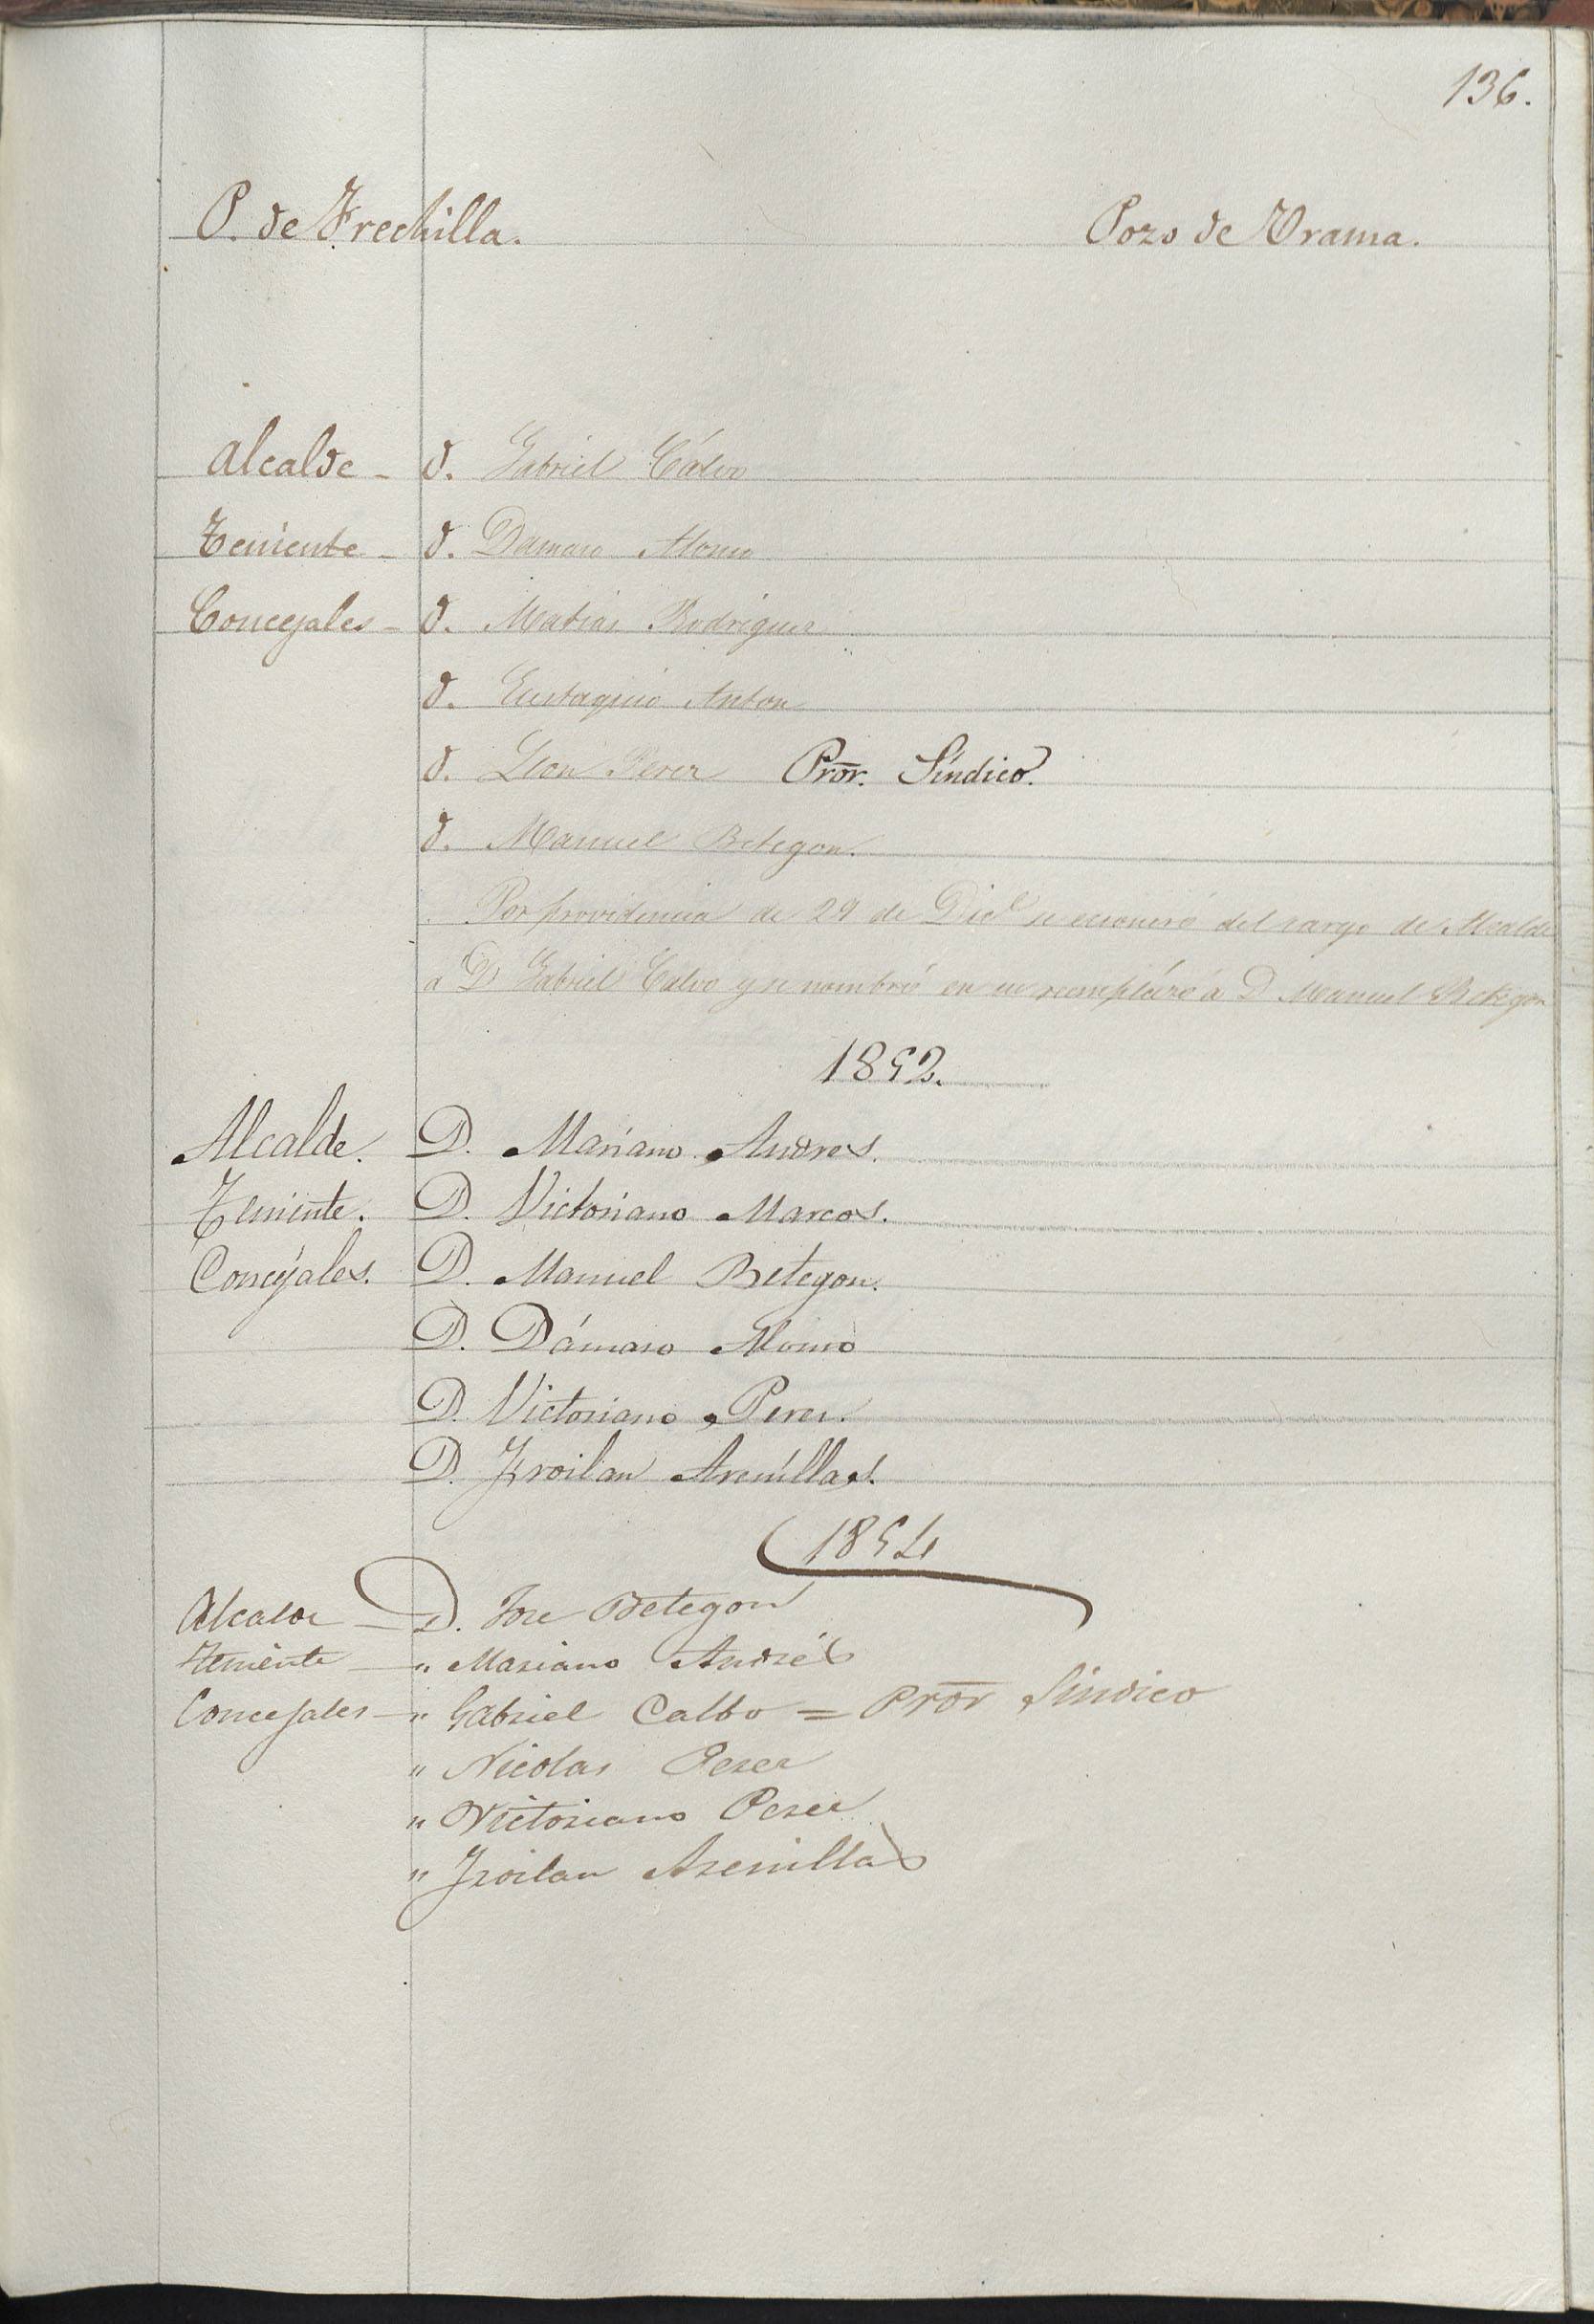 136.
P. de Frechilla. Pozo de Urama.
Alcalde - D. Gabriel Cálvo
Teniente - D. Damaso Alonso
Concejales - D. Matias Rodriguez
D. Eustaquio Anton
D. Leon Perez Pror. Síndico.
D. Manuel Betegon.
Por providencia de 29 de Dice se exoneró del cargo de Alcalde
a D Gabriel Calvo y se nombró en su reemplazo a D Manuel Betegon
1852.
Alcalde. D. Mariano Andres.
Teniente. D. Victoriano Marcos.
Concejales. D. Manuel Betegon.
D. Dámaso Alonso
D. Victoriano Perez.
D. Froilan Arenillas.
1854
Alcalde - D. Jose Betegon
Teniente - " Mariano Andrés
Concejales - " Gabriel Calbo = Pror Sindico
" Nicolas Perez
" Victoriano Perez
" Froilan Arenillas